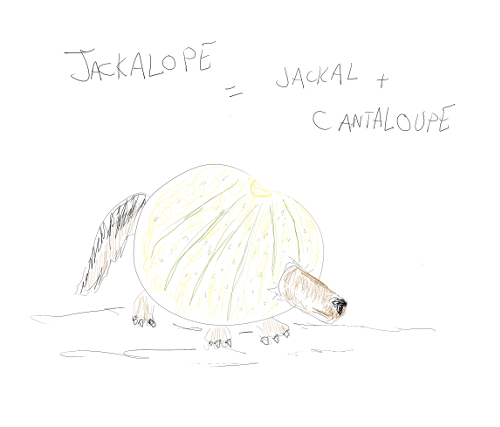 JACKALOPE
= JACKAL +
CANTALOUPE